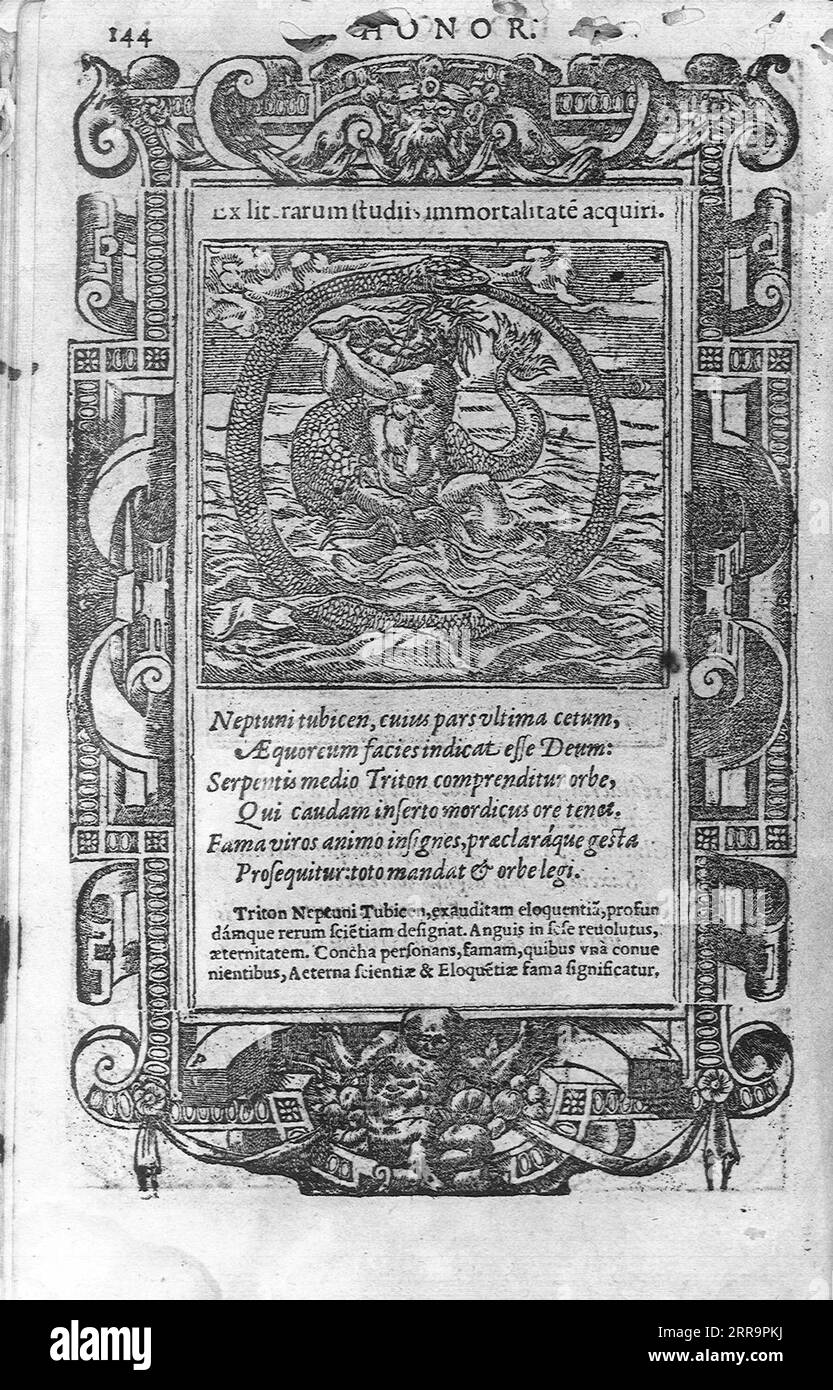 144 HONOR.
Ex literarum ſtudiis immortalitatē acquiri.
Neptuni tubicen, cuius pars vltima cetum,
Æquoreum facies indicat eſſe Deum:
Serpentis medio Triton comprenditur orbe,
Qui caudam inſerto mordicus ore tenet.
Fama viros animo inſignes, præcláraque geſta
Proſequitur: toto mandat & orbe legi.
Triton Neptuni Tubicen, exauditam eloquentiā, profun
dámque rerum ſciētiam deſignat. Anguis in ſeſe reuolutus,
æternitatem. Concha perſonans, famam, quibus vnà conue
nientibus, Aeterna ſcientiæ & Eloquētiæ fama ſignificatur.
P V
alamy
alamy
Image ID: 2RR9PKJ
www.alamy.com